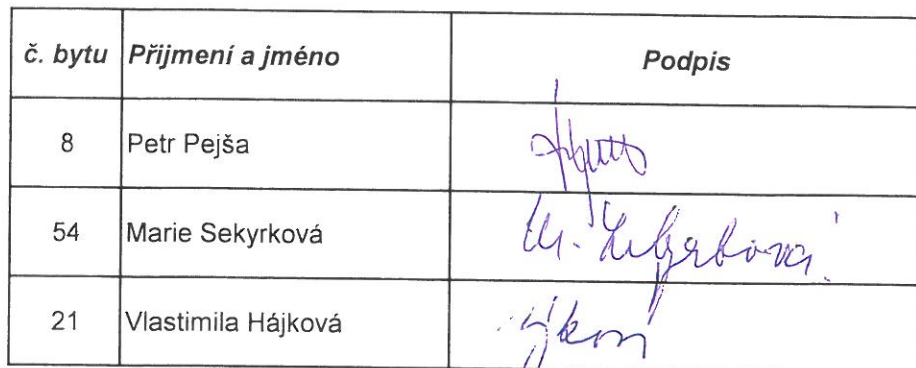 č. bytu Přijmení a jméno Podpis
8 Petr Pejša
54 Marie Sekyrková M. Sekyrková
21 Vlastimila Hájková